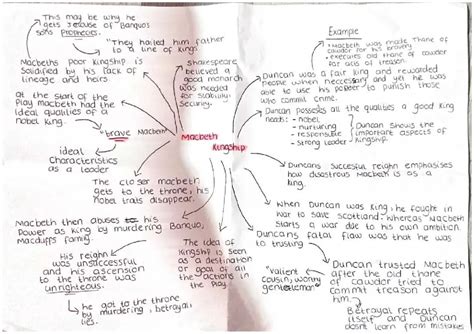 This may be why he
gets jelouse of Banquos
sons Prophecies.
"They hailed him father
to a line of kings"
Macbeths poor kingship is
solidified by his lack of
lineage and heirs
At the start of the
Play macbeth had the
ideal qualities of a
nobel king.
"brave Macbeth"
ideal
Characteristics
as a leader
The closer macbeth
gets to the throne, his
nobal traits disappear.
Macbeth then abuses his
Power as king by murdering Banquo,
Macduffs family.
His reighn
was unsuccessful
and his ascension
to the throne was
unrighteous.
he got to the throne
by murdering, betrayal,
lies.
Shakespeare
believed a
good monarch
was needed
for stability
security.
Macbeth
Kingship
The idea of
Kingship is seen
as a destination
or goal of all
the actions in
the play.
Example
Macbeth was made thane of
cawdor for his bravery
executes old thane of cawdor
for acts of treason
Duncan was a fair king and rewarded
people when neccessary and yet he was
able to use his power to punish those
who commit crime.
Duncan possesses all the qualities a good king
needs:
• nobel
- nurturing
- responsible
- strong leader
Duncan shows the
important aspects of
kingship.
Duncans succesful reighn emphasises
how disastrous Macbeth is as a king.
When Duncan was king, he fought in
war to save scotland whereas Macbeth
starts a war due to his own ambition.
Duncans fatal flaw was that he was
to trusting
"valient
cousin, worthy
gentleman"
Duncan trusted Macbeth
after the old thane
of cawdor tried to
commit treason against
him.
Betrayal repeats
itself and Duncan
dosnt learn from mistakes